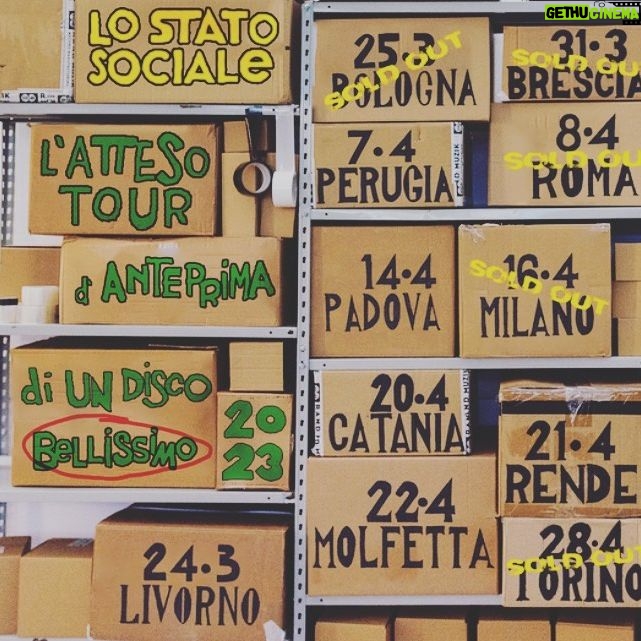 GETHUCINEMA
LO STATO
SOCIALE
L'ATTESO
TOUR
d'ANTEPRIMA
di UN DISCO
BELLISSIMO
20
23
24.3
LIVORNO
25.3
BOLOGNA
SOLD OUT
31.3
BRESCIA
SOLD OUT
7.4
PERUGIA
8.4
ROMA
SOLD OUT
14.4
PADOVA
16.4
MILANO
SOLD OUT
20.4
CATANIA
21.4
RENDE
22.4
MOLFETTA
28.4
TORINO
SOLD OUT